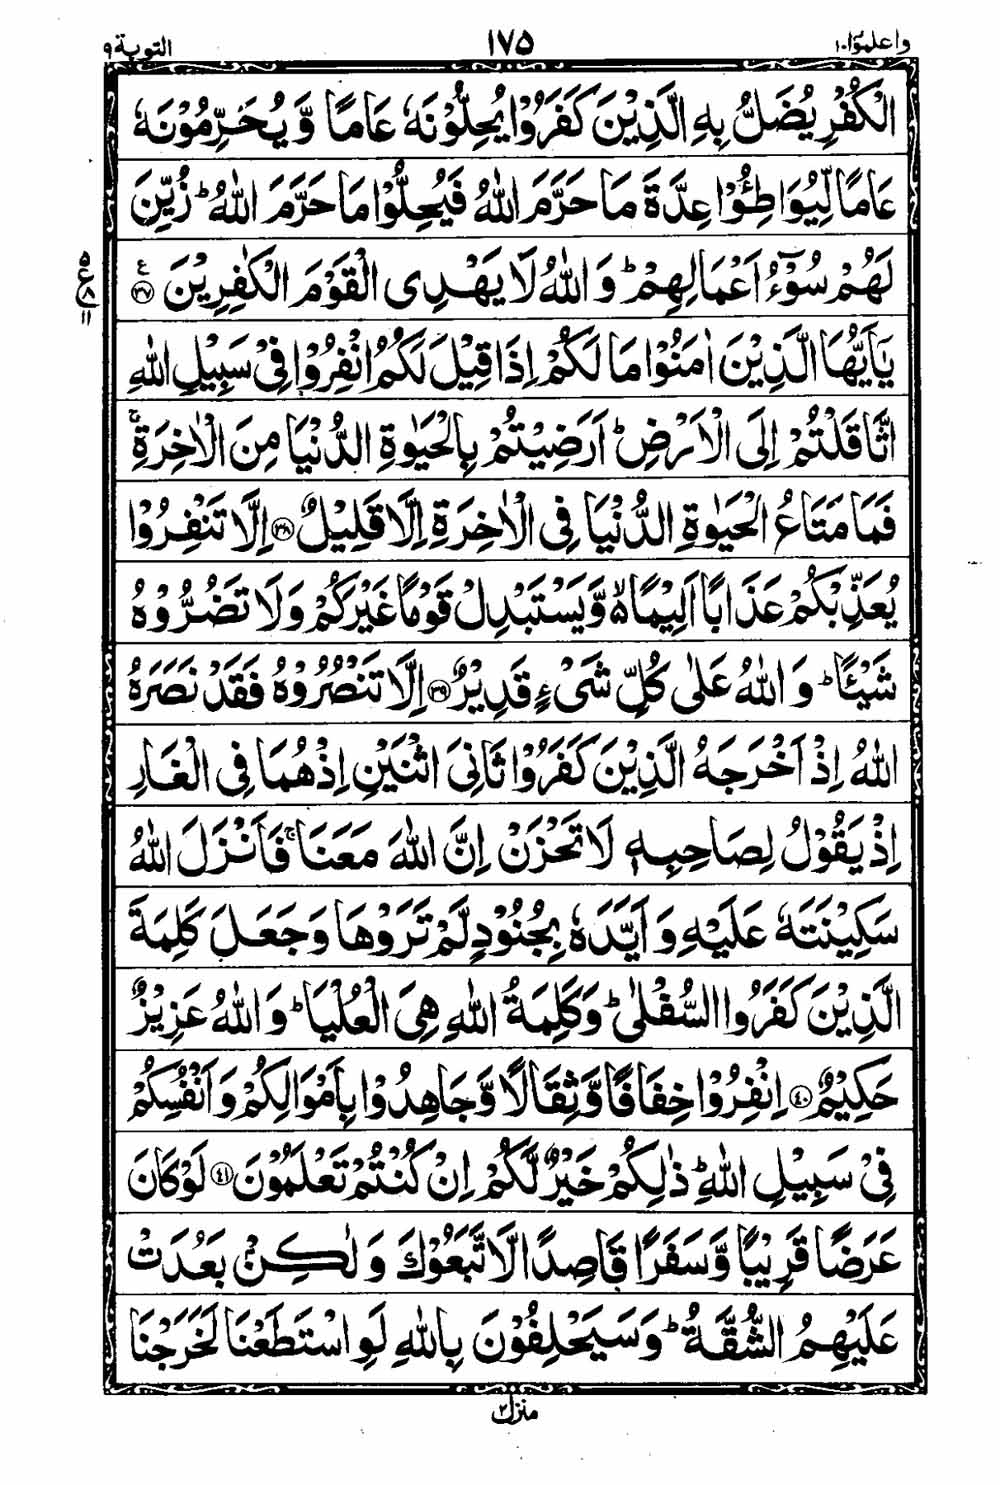 واعلموٓا ١٠ ١٧٥ التوبة ٩
الۡكُفۡرِ يُضَلُّ بِهِ الَّذِيۡنَ كَفَرُوۡا يُحِلُّوۡنَهٗ عَامًا وَّيُحَرِّمُوۡنَهٗ
عَامًا لِّيُوَاطِـُٔوۡا عِدَّةَ مَا حَرَّمَ اللّٰهُ فَيُحِلُّوۡا مَا حَرَّمَ اللّٰهُ ؕ زُيِّنَ
لَهُمۡ سُوۡٓءُ اَعۡمَالِهِمۡ ؕ وَاللّٰهُ لَا يَهۡدِى الۡقَوۡمَ الۡكٰفِرِيۡنَ ع ﴿۳۷﴾
ع ٥ ٨ ١١
يٰۤاَيُّهَا الَّذِيۡنَ اٰمَنُوۡا مَا لَكُمۡ اِذَا قِيۡلَ لَكُمُ انْفِرُوۡا فِىۡ سَبِيۡلِ اللّٰهِ
اثَّاقَلۡتُمۡ اِلَى الۡاَرۡضِ ؕ اَرَضِيۡتُمۡ بِالۡحَيٰوةِ الدُّنۡيَا مِنَ الۡاٰخِرَةِ ۚ
فَمَا مَتَاعُ الۡحَيٰوةِ الدُّنۡيَا فِى الۡاٰخِرَةِ اِلَّا قَلِيۡلٌ ﴿۳۸﴾ اِلَّا تَنۡفِرُوۡا
يُعَذِّبۡكُمۡ عَذَابًا اَلِيۡمًا ۙ وَّيَسۡتَبۡدِلۡ قَوۡمًا غَيۡرَكُمۡ وَلَا تَضُرُّوۡهُ
شَيۡـًٔا ؕ وَاللّٰهُ عَلٰى كُلِّ شَىۡءٍ قَدِيۡرٌ ﴿۳۹﴾ اِلَّا تَنۡصُرُوۡهُ فَقَدۡ نَصَرَهُ
اللّٰهُ اِذۡ اَخۡرَجَهُ الَّذِيۡنَ كَفَرُوۡا ثَانِىَ اثۡنَيۡنِ اِذۡ هُمَا فِى الۡغَارِ
اِذۡ يَقُوۡلُ لِصَاحِبِهٖ لَا تَحۡزَنۡ اِنَّ اللّٰهَ مَعَنَا ۚ فَاَنۡزَلَ اللّٰهُ
سَكِيۡنَتَهٗ عَلَيۡهِ وَاَيَّدَهٗ بِجُنُوۡدٍ لَّمۡ تَرَوۡهَا وَجَعَلَ كَلِمَةَ
الَّذِيۡنَ كَفَرُوا السُّفۡلٰى ؕ وَكَلِمَةُ اللّٰهِ هِىَ الۡعُلۡيَا ؕ وَاللّٰهُ عَزِيۡزٌ
حَكِيۡمٌ ﴿۴۰﴾ اِنْفِرُوۡا خِفَافًا وَّثِقَالًا وَّجَاهِدُوۡا بِاَمۡوَالِكُمۡ وَاَنۡفُسِكُمۡ
فِىۡ سَبِيۡلِ اللّٰهِ ؕ ذٰلِكُمۡ خَيۡرٌ لَّكُمۡ اِنۡ كُنۡتُمۡ تَعۡلَمُوۡنَ ﴿۴۱﴾ لَوۡ كَانَ
عَرَضًا قَرِيۡبًا وَّسَفَرًا قَاصِدًا لَّاتَّبَعُوۡكَ وَلٰكِنۡۢ بَعُدَتۡ
عَلَيۡهِمُ الشُّقَّةُ ؕ وَسَيَحۡلِفُوۡنَ بِاللّٰهِ لَوِ اسۡتَطَعۡنَا لَخَرَجۡنَا
منزل ٢